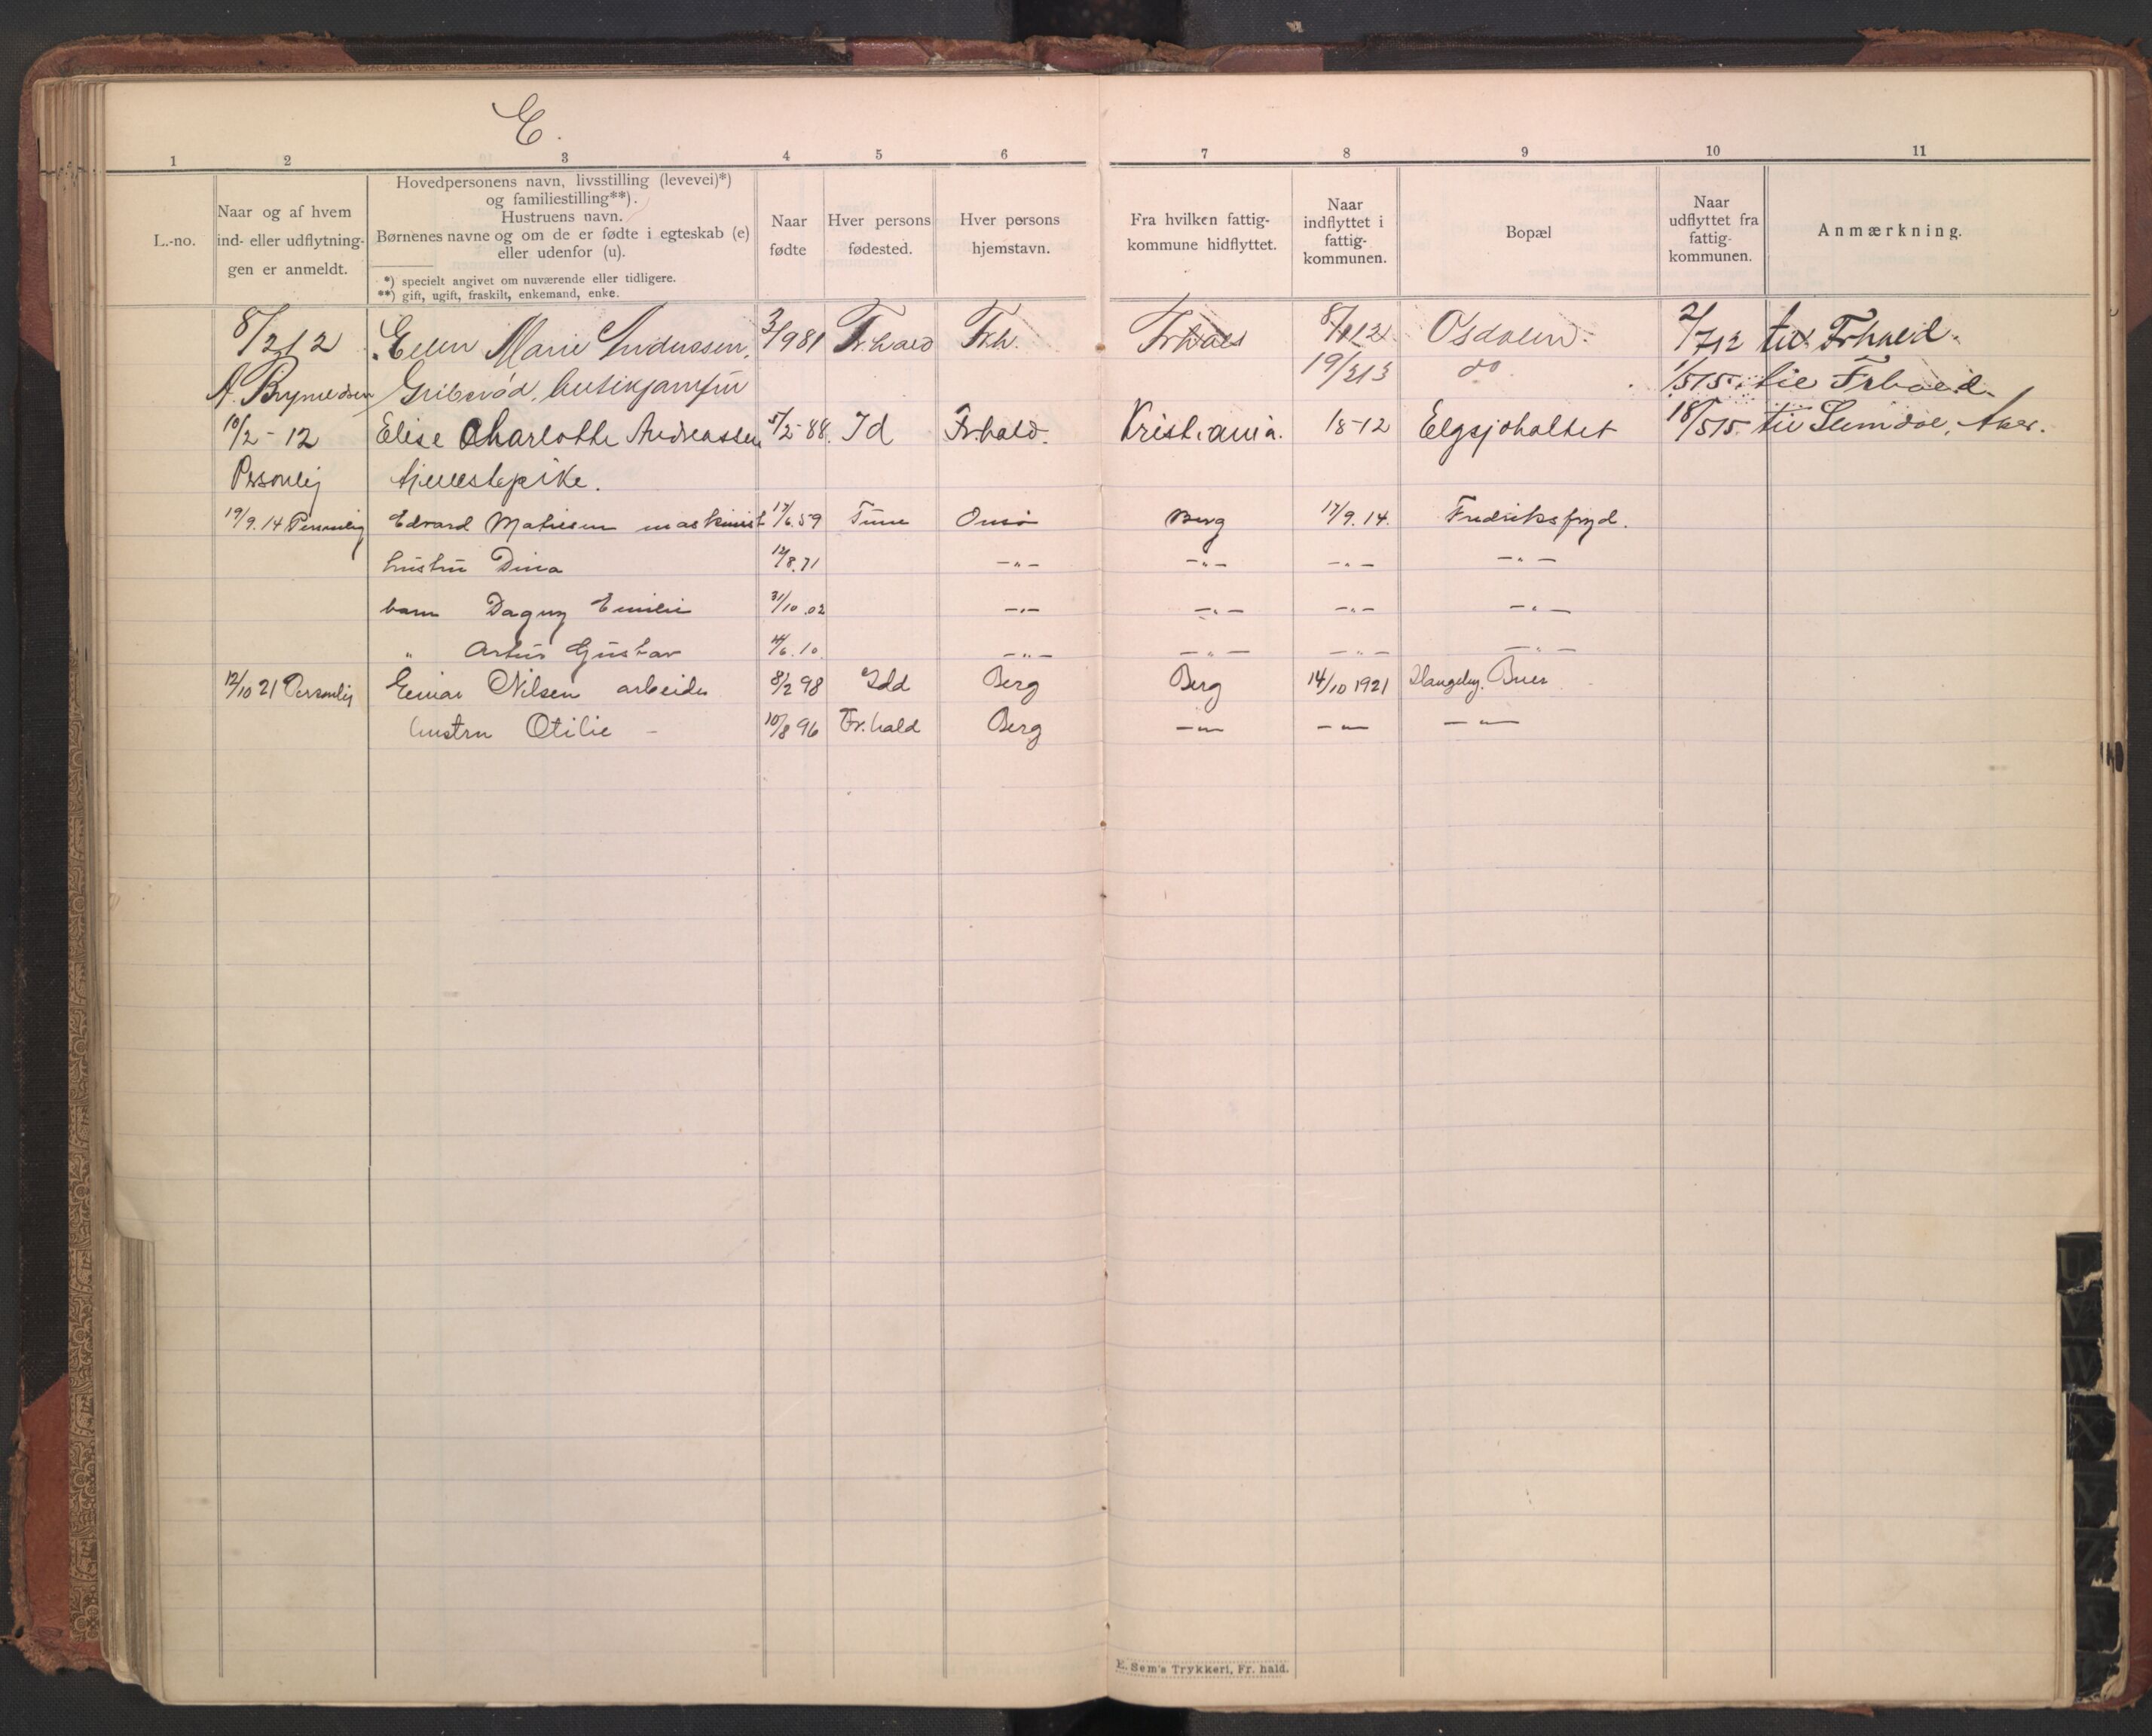 E.
1 2 3 4 5 6 7 8 9 10 11
L.-no.
Naar og af hvem
ind- eller udflytnin-
gen er anmeldt.
Hovedpersonens navn, livsstilling (levevei)*)
og familiestilling**).
Hustruens navn.
Børnenes navne og om de er fødte i egteskab (e)
eller udenfor (u).
*) specielt angivet om nuværende eller tidligere.
**) gift, ugift, fraskilt, enkemand, enke.
Naar
fødte
Hver persons
fødested.
Hver persons
hjemstavn.
Fra hvilken fattig-
kommune hidflyttet.
Naar
indflyttet i
fattig-
kommunen.
Bopæl
Naar
udflyttet fra
fattig-
kommunen.
Anmærkning.
8/2 12 Ellen Marie Andreassen, 3/9 81 Fr.hald Fr.h. Fr.hald 8/1 12 Osdalen 2/7 12 til Fr.hald.
A. Brynildsen Gribsrød, butikjomfru 19/2 13 do 1/5 15 til Fr.hald.
10/2 - 12 Elise Charlotte Andreassen 5/2-88. Id Fr.hald. Kristiania. 1/8-12 Elgsjøholtet 18/5 15. til Aker.
Personlig tjenestepike.
19/9.14 Personlig Edvard Mathisen maskinist 17/6.59 Tune Onsø Berg 17/9.14. Fredriksfryd.
hustru Dina 12/8.71 -"- -"- -"- -"-
barn Dagny Emilie 31/10.02 -"- -"- -"- -"-
" Artur Gustav 4/6.10. -"- -"- -"- -"-
12/10 21 Personlig Einar Nilsen arbeider 8/2 98 Idd Berg Berg 14/10 1921 Haugeby. Buer
hustru Otilie - 10/8 96 Fr.hald Berg -"- -"- -"-
E. Sem's Trykkeri, Fr. hald.
U
V
W
X
Y
Z